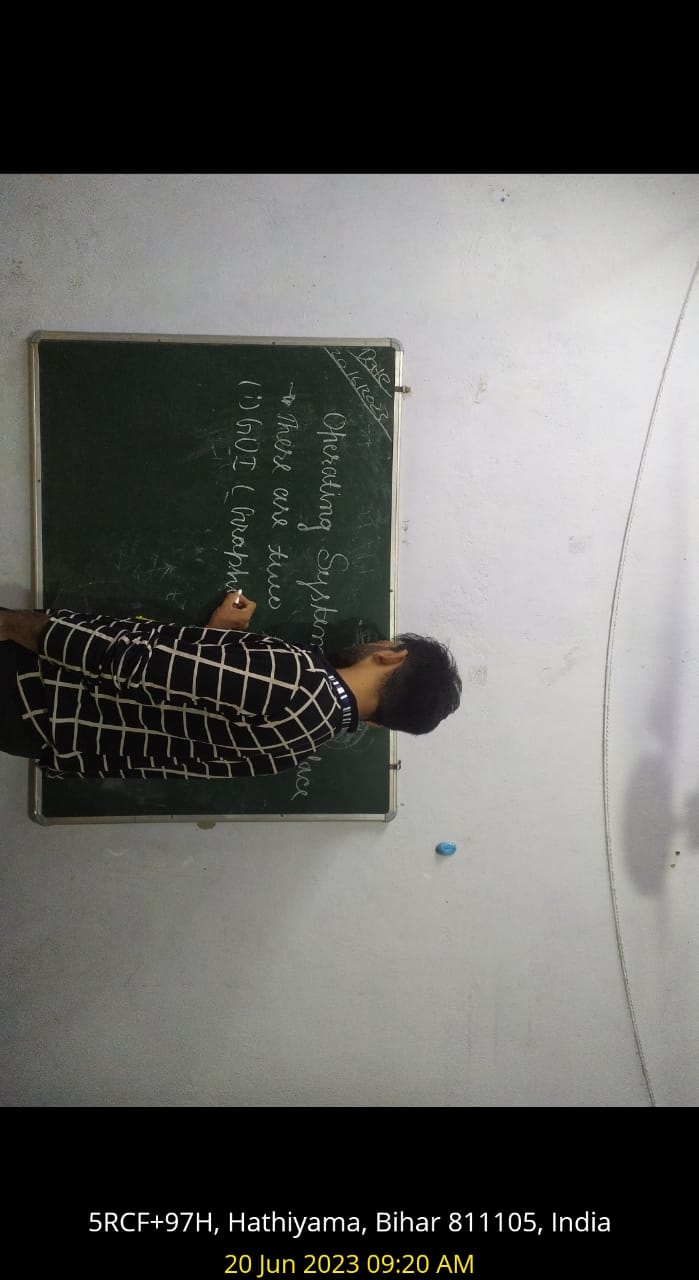 Date
20/6/2023
Operating System face
→ There are two
(i) GUI ( Graphi
5RCF+97H, Hathiyama, Bihar 811105, India
20 Jun 2023 09:20 AM